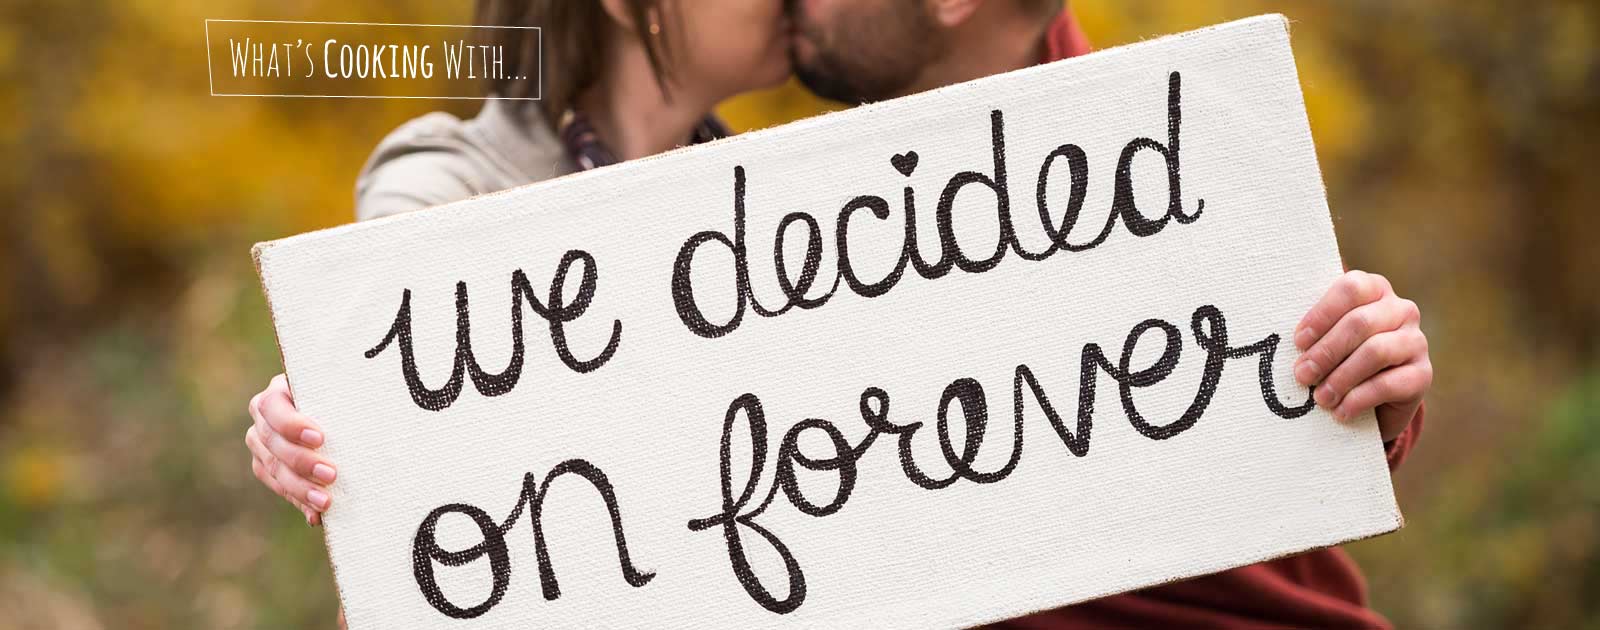 What's Cooking With...
we decided
on forever